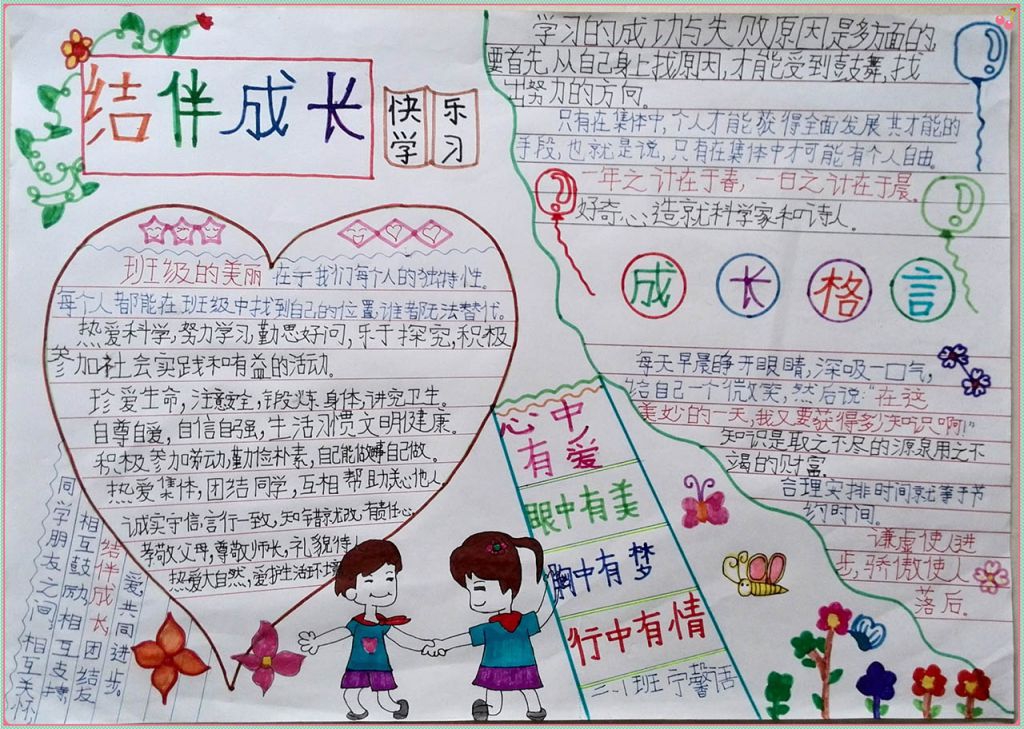 结伴成长
快乐
学习
学习的成功与失败原因是多方面的,
要首先,从自己身上找原因,才能受到鼓舞,找
出努力的方向。
只有在集体中,个人才能获得全面发展其才能的
手段,也就是说,只有在集体中才可能有个人自由.
一年之计在于春,一日之计在于晨。
好奇心造就科学家和诗人。
成长格言
每天早晨睁开眼睛,深吸一口气,
给自己一个微笑,然后说:"在这
美妙的一天,我又要获得多少知识啊!"
知识是取之不尽的源泉用之不
竭的财富.
合理安排时间就等于节
约时间。
谦虚使人进
步,骄傲使人
落后.
班级的美丽在于我们每个人的独特性.
每个人都能在班级中找到自己的位置,谁都无法替代.
热爱科学,努力学习,勤思好问,乐于探究,积极
参加社会实践和有益的活动.
珍爱生命,注意安全,锻炼身体,讲究卫生。
自尊自爱,自信自强,生活习惯文明健康.
积极参加劳动,勤俭朴素,自己能做事自己做.
热爱集体,团结同学,互相帮助关心他人.
诚实守信,言行一致,知错就改,有责任心.
孝敬父母,尊敬师长,礼貌待人
热爱大自然,爱护生活环境
心中有爱
眼中有美
胸中有梦
行中有情
三.1班宁馨语
同学朋友之间,相互关怀,
相互鼓励,相互支撑,
结伴成长,团结友
爱,共同进步。